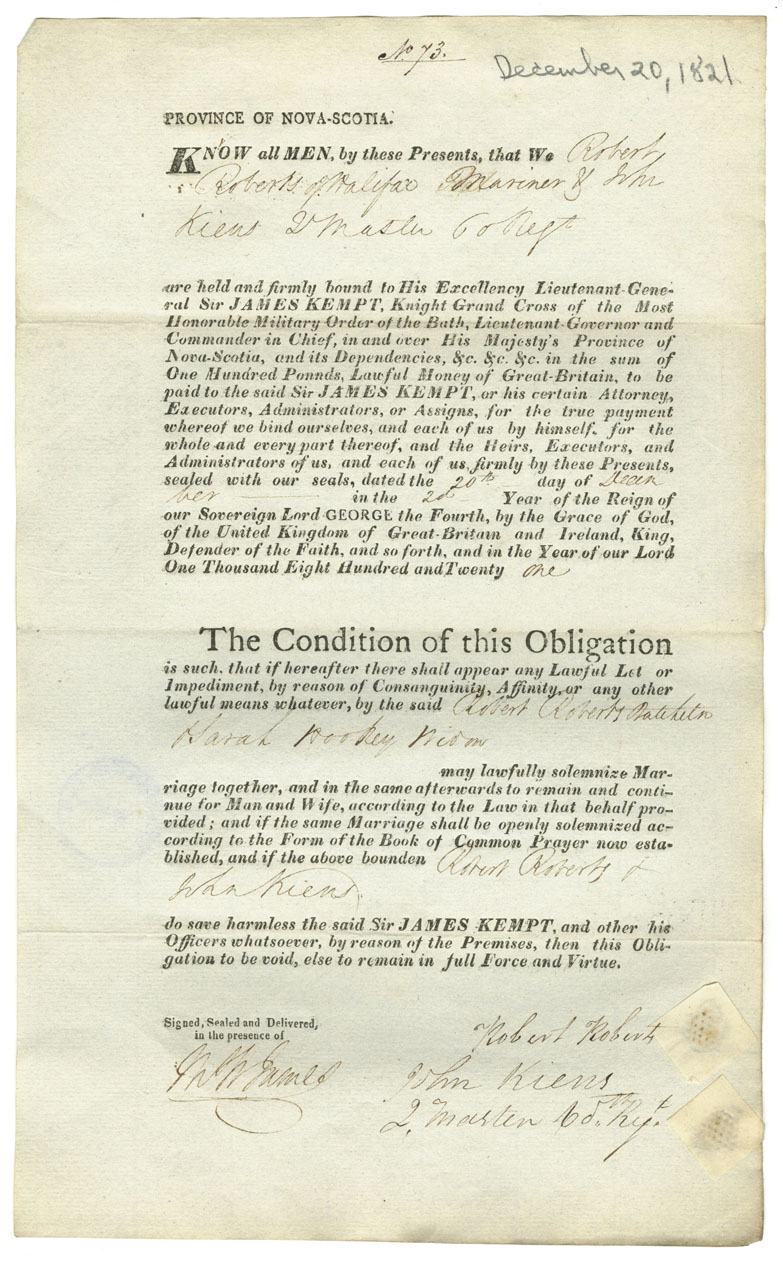 No 73.
December 20, 1821
PROVINCE OF NOVA-SCOTIA.
KNOW all MEN, by these Presents, that We Robert
Roberts of Halifax Mariner & John
Kiens Qr Master 60 Regt
are held and firmly bound to His Excellency Lieutenant-Gene-
ral Sir JAMES KEMPT, Knight Grand Cross of the Most
Honorable Military Order of the Bath, Lieutenant-Governor and
Commander in Chief, in and over His Majesty's Province of
Nova-Scotia, and its Dependencies, &c. &c. &c. in the sum of
One Hundred Ponnds, Lawful Money of Great-Britain, to be
paid to the said Sir JAMES KEMPT, or his certain Attorney,
Executors, Administrators, or Assigns, for the true payment
whereof we bind ourselves, and each of us by himself, for the
whole and every part thereof, and the Heirs, Executors, and
Administrators of us, and each of us, firmly by these Presents,
sealed with our seals, dated the 20th day of Decem
ber in the 2d Year of the Reign of
our Sovereign Lord GEORGE the Fourth, by the Grace of God,
of the United Kingdom of Great-Britain and Ireland, King,
Defender of the Faith, and so forth, and in the Year of our Lord
One Thousand Eight Hundred and Twenty one
The Condition of this Obligation
is such, that if hereafter there shall appear any Lawful Let or
Impediment, by reason of Consanguinity, Affinity, or any other
lawful means whatever, by the said Robert Roberts Batchelor
& Sarah Hookey Widow
may lawfully solemnize Mar-
riage together, and in the same afterwards to remain and conti-
nue for Man and Wife, according to the Law in that behalf pro-
vided; and if the same Marriage shall be openly solemnized ac-
cording to the Form of the Book of Common Prayer now esta-
blished, and if the above bounden Robert Roberts &
John Kiens
do save harmless the said Sir JAMES KEMPT, and other his
Officers whatsoever, by reason of the Premises, then this Obli-
gation to be void, else to remain in full Force and Virtue.
Signed, Sealed and Delivered,
in the presence of
James
Robert Roberts
John Kiens
Q. Master 60th Regt.